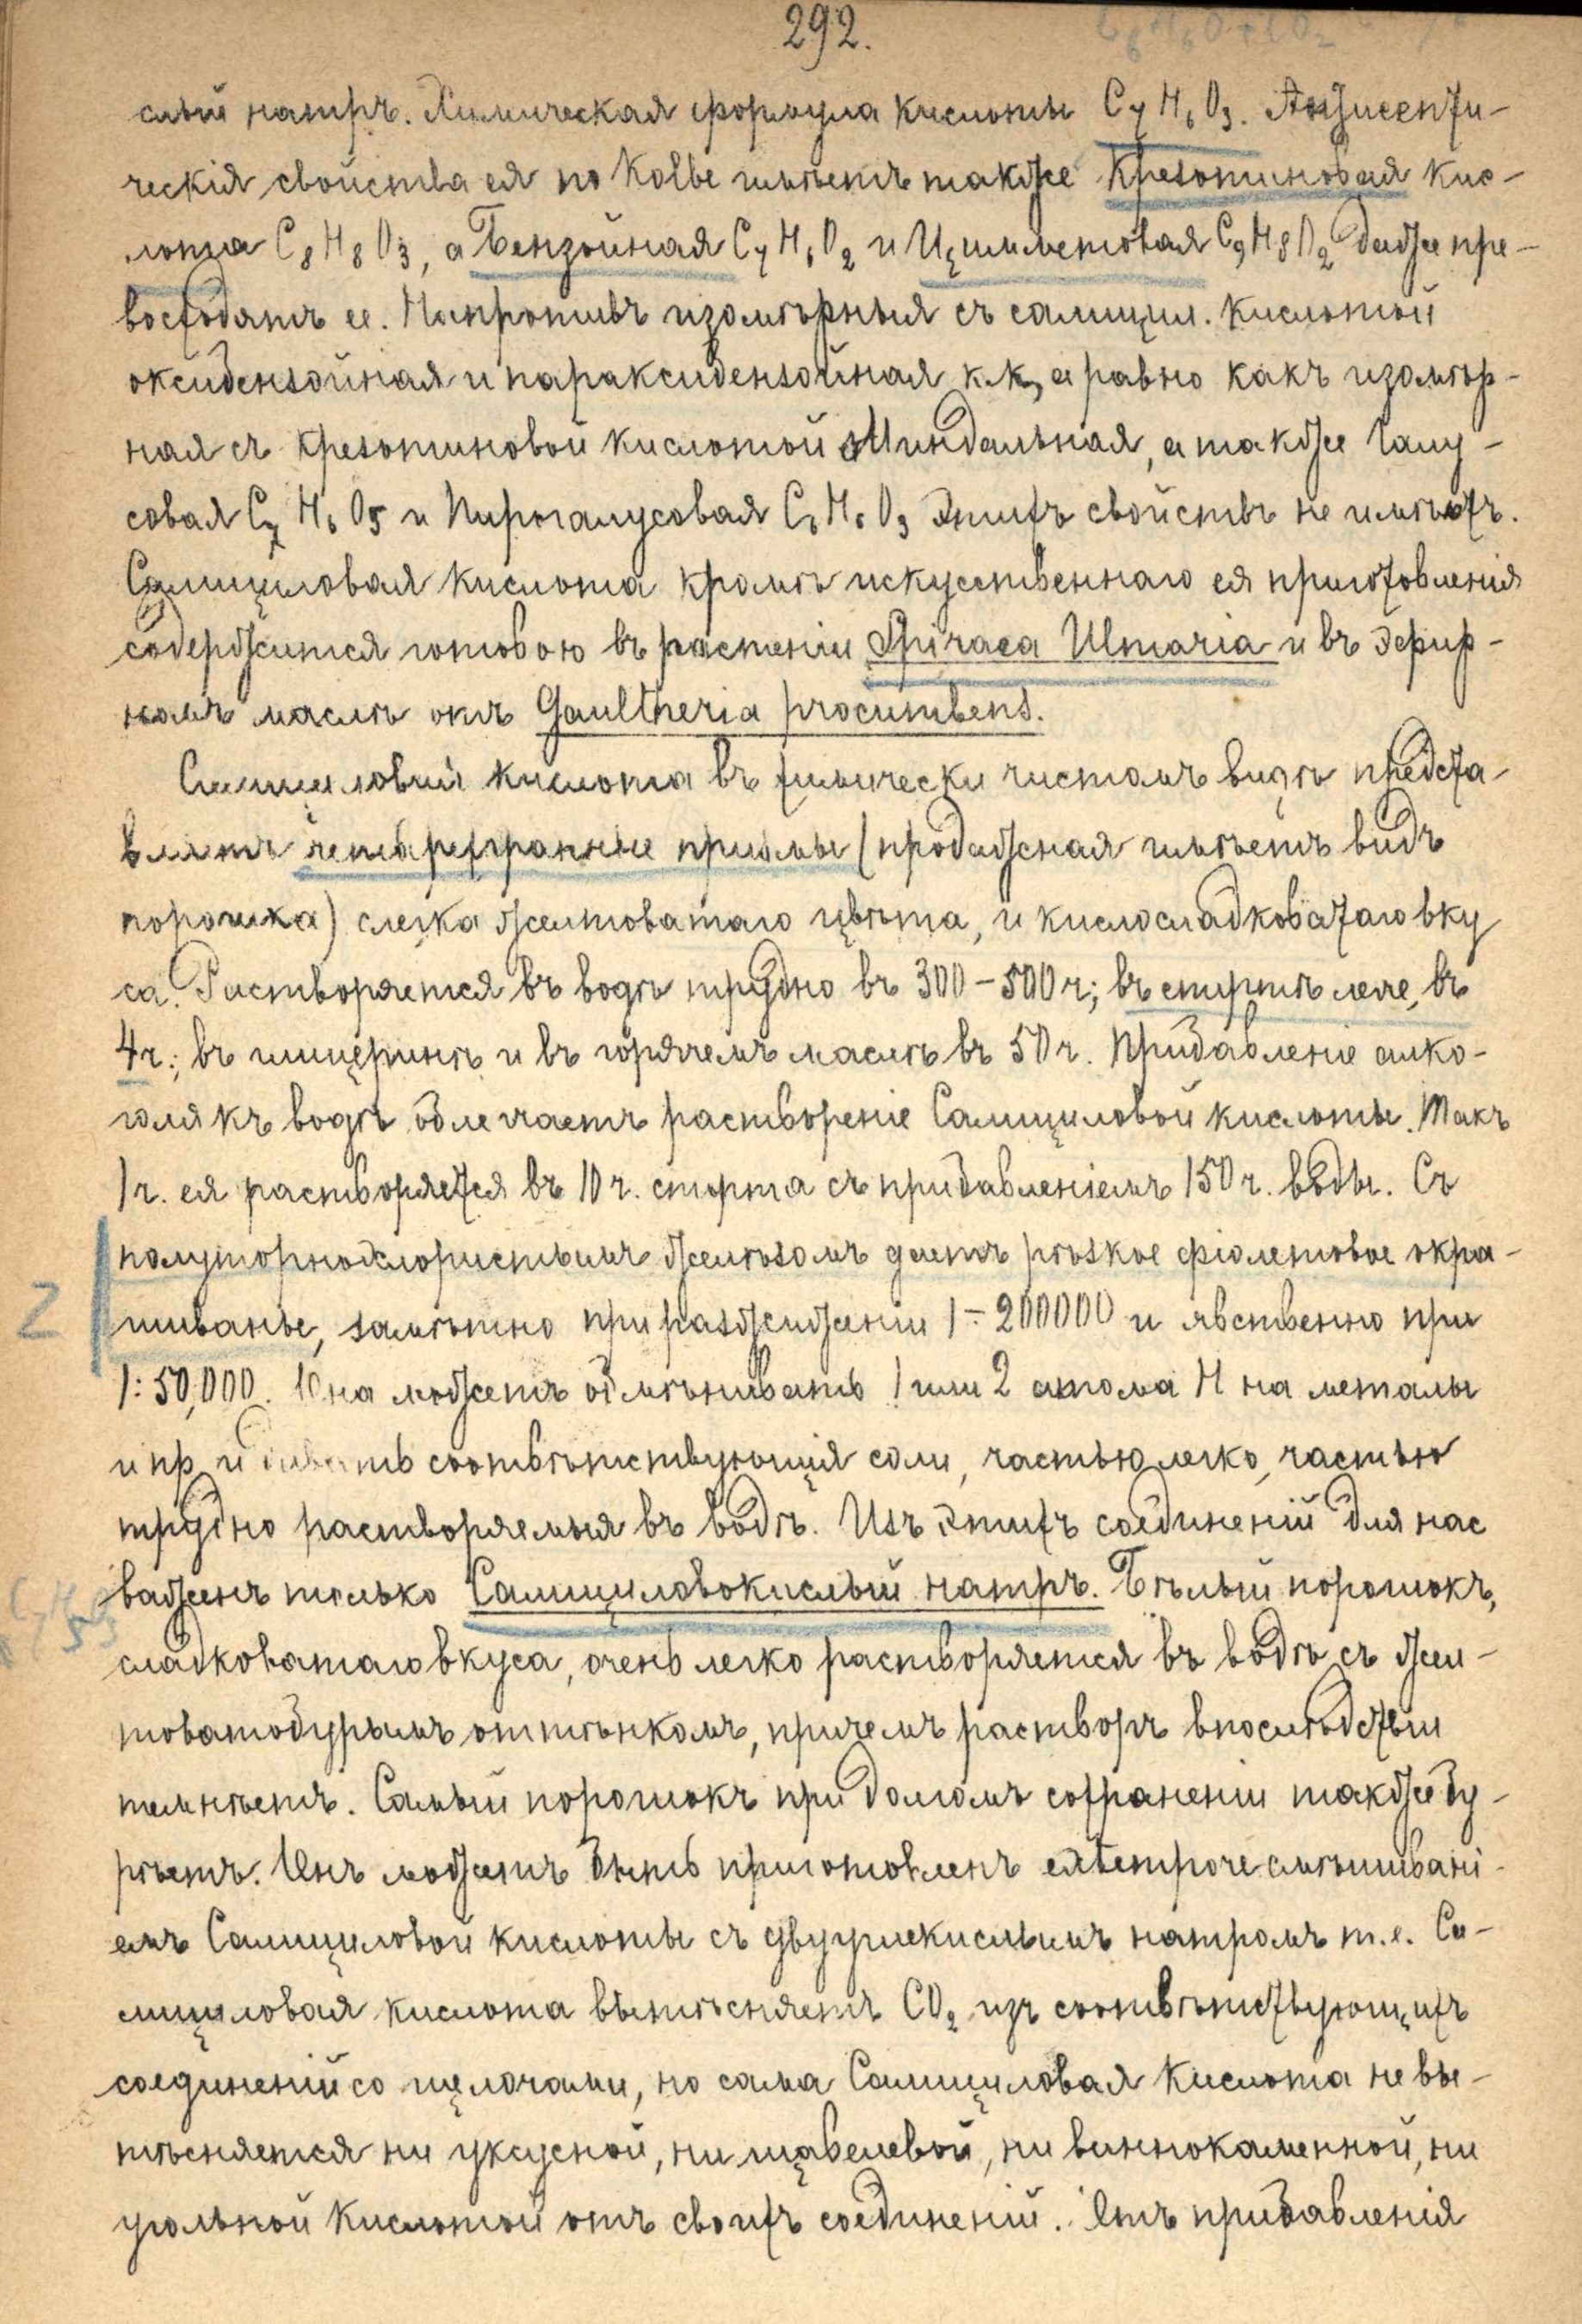 292.
C6H6O+CO2
слый натръ. Химическая формула кислоты C7H6O3. Антисепти-
ческія свойства ея по Kolbe имѣетъ также Крезотиновая кис-
лота C8H8O3, а Бензойная C7H6O2 и Циммметовая C9H8O2 даже пре-
восходятъ ее. Напротивъ изомѣрныя съ салицил. кислотой
оксибензойная и параксибензойная к.к, а равно какъ изомѣр-
ная съ крезотиновой кислотой Миндальная, а также Галу-
совая C7H6O5 и Пирогалусовая C6H6O3 этихъ свойствъ не имѣютъ.
Салициловая кислота кромѣ искуственнаго ея приготовленія
содержится готовою въ растеніи Spiraea Ulmaria и въ эфир-
номъ маслѣ отъ Gaultheria procumbens.
Салициловая кислота въ химически чистомъ видѣ предста-
вляетъ четырегранные призмы (продажная имѣетъ видъ
порошка) слегка желтоватаго цвѣта, и кислосладковатаго вку
са. Растворяется въ водѣ трудно въ 300-500 ч; въ спиртѣ легче, въ
4 ч.; въ глицеринѣ и въ горячемъ маслѣ въ 50 ч. Придавленіе алко-
голя къ водѣ облегчаетъ раствореніе Салициловой кислоты. Такъ
1 ч. ея растворяется въ 10 ч. спирта съ придавленіемъ 150 ч. воды. Съ
полуторнохлористымъ желѣзомъ даетъ рѣзкое фіолетовое окра-
шиванье, замѣтно при разжиженіи 1÷200000 и явственно при
1:50,000. Она можетъ обмѣнивать 1 или 2 атома H на металы
и пр и давать соотвѣтствующія соли, частью легко, частью
трудно растворяемыя въ водѣ. Изъ этихъ соединеній для нас
важенъ только Салициловокислый натръ. Бѣлый порошокъ,
сладковатаго вкуса, очень легко растворяется въ водѣ съ жел-
товатобурымъ оттѣнкомъ, причемъ растворъ впослѣдствіи
темнѣетъ. Самый порошокъ при долгомъ сохраненіи также бу-
рѣетъ. Онъ можетъ быть приготовленъ ex tempore смѣшивані-
емъ Салициловой кислоты съ двууглекислымъ натромъ т.е. Са-
лициловая кислота вытѣсняетъ CO2 изъ соотвѣтствующихъ
соединеній со щелочами, но сама Салициловая кислота не вы-
тѣсняется ни уксусной, ни щавелевой, ни виннокаменной, ни
угольной кислотой отъ своихъ соединеній. Отъ придавленія